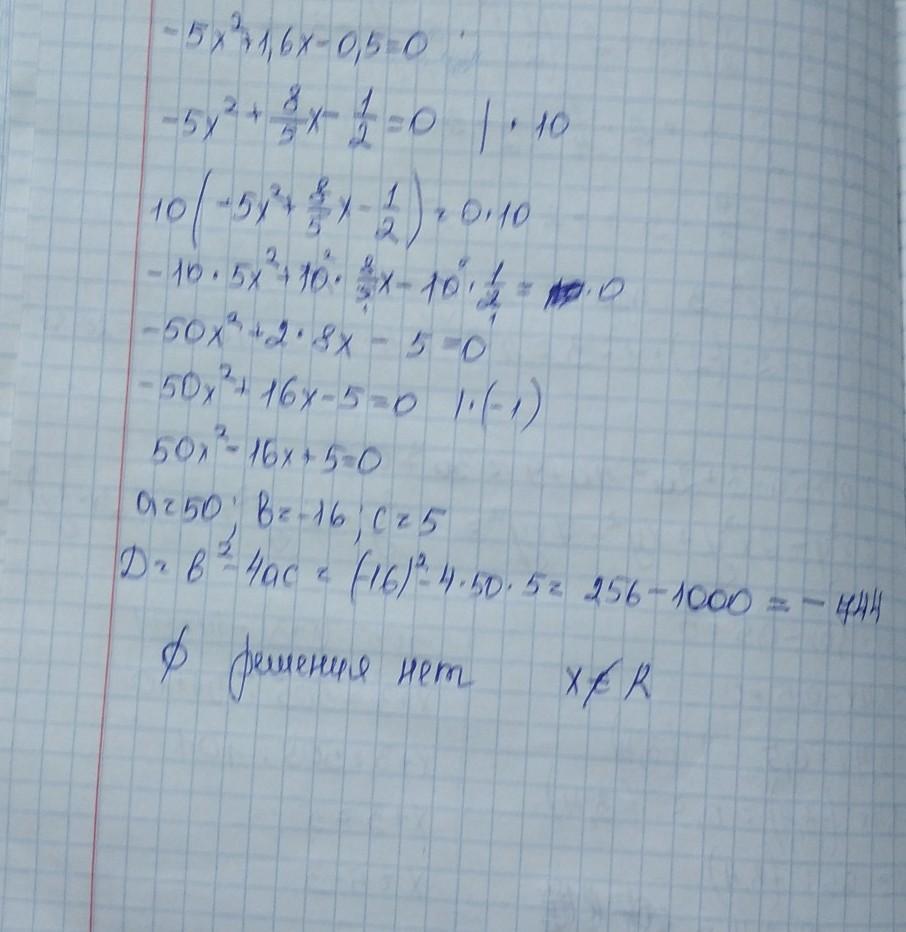 -5x²+1,6x-0,5=0
-5x² + 8/5x - 1/2 = 0 | · 10
10(-5x² + 8/5x - 1/2) = 0·10
-10·5x² + 10²· 8/5₁x - 10⁵· 1/2₁ = ·0
-50x² + 2·8x - 5 = 0
-50x² + 16x - 5 = 0 | ·(-1)
50x² - 16x + 5 = 0
a = 50; в = -16; c = 5
D = в² - 4ac = (-16)² - 4·50·5 = 256 - 1000 = - 744
∅ решения нет x ∉ R